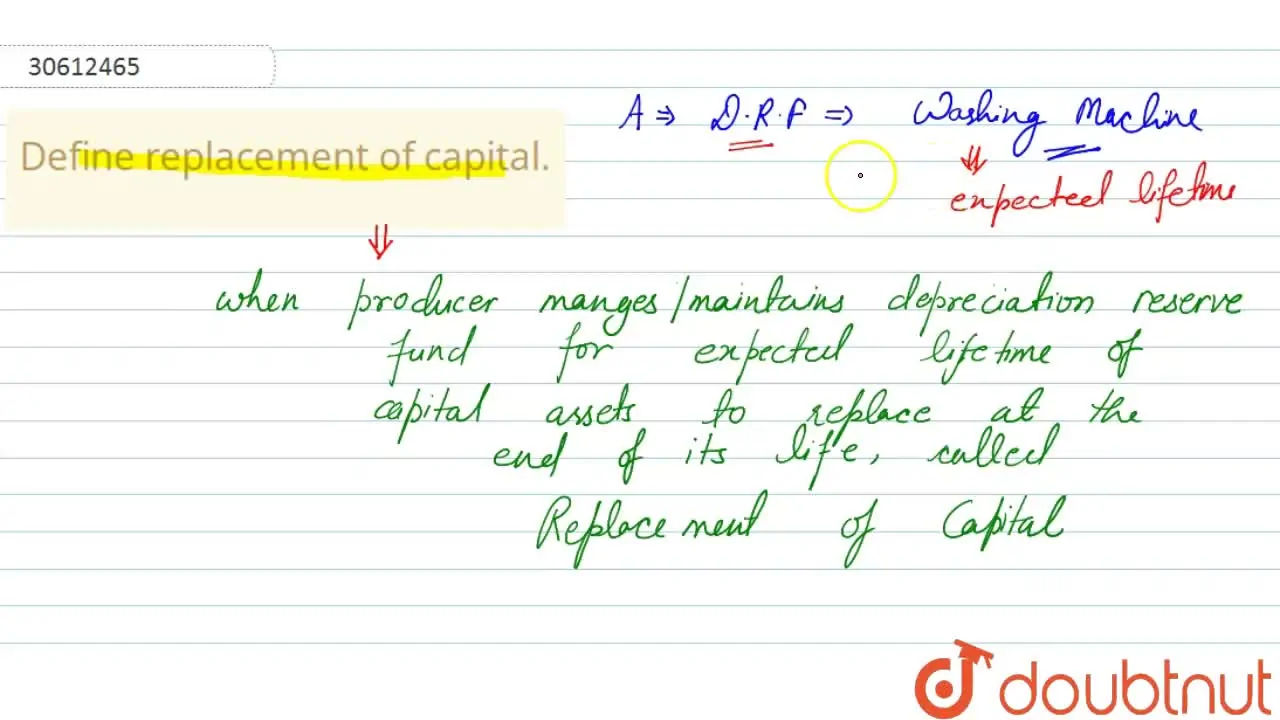 30612465
Define replacement of capital.
A ⇒ D.R.F ⇒ Washing Machine
⇓
expected lifetime
⇓
when producer manges/maintains depreciation reserve
fund for expected lifetime of
capital assets to replace at the
end of its life, called
Replacement of Capital
doubtnut